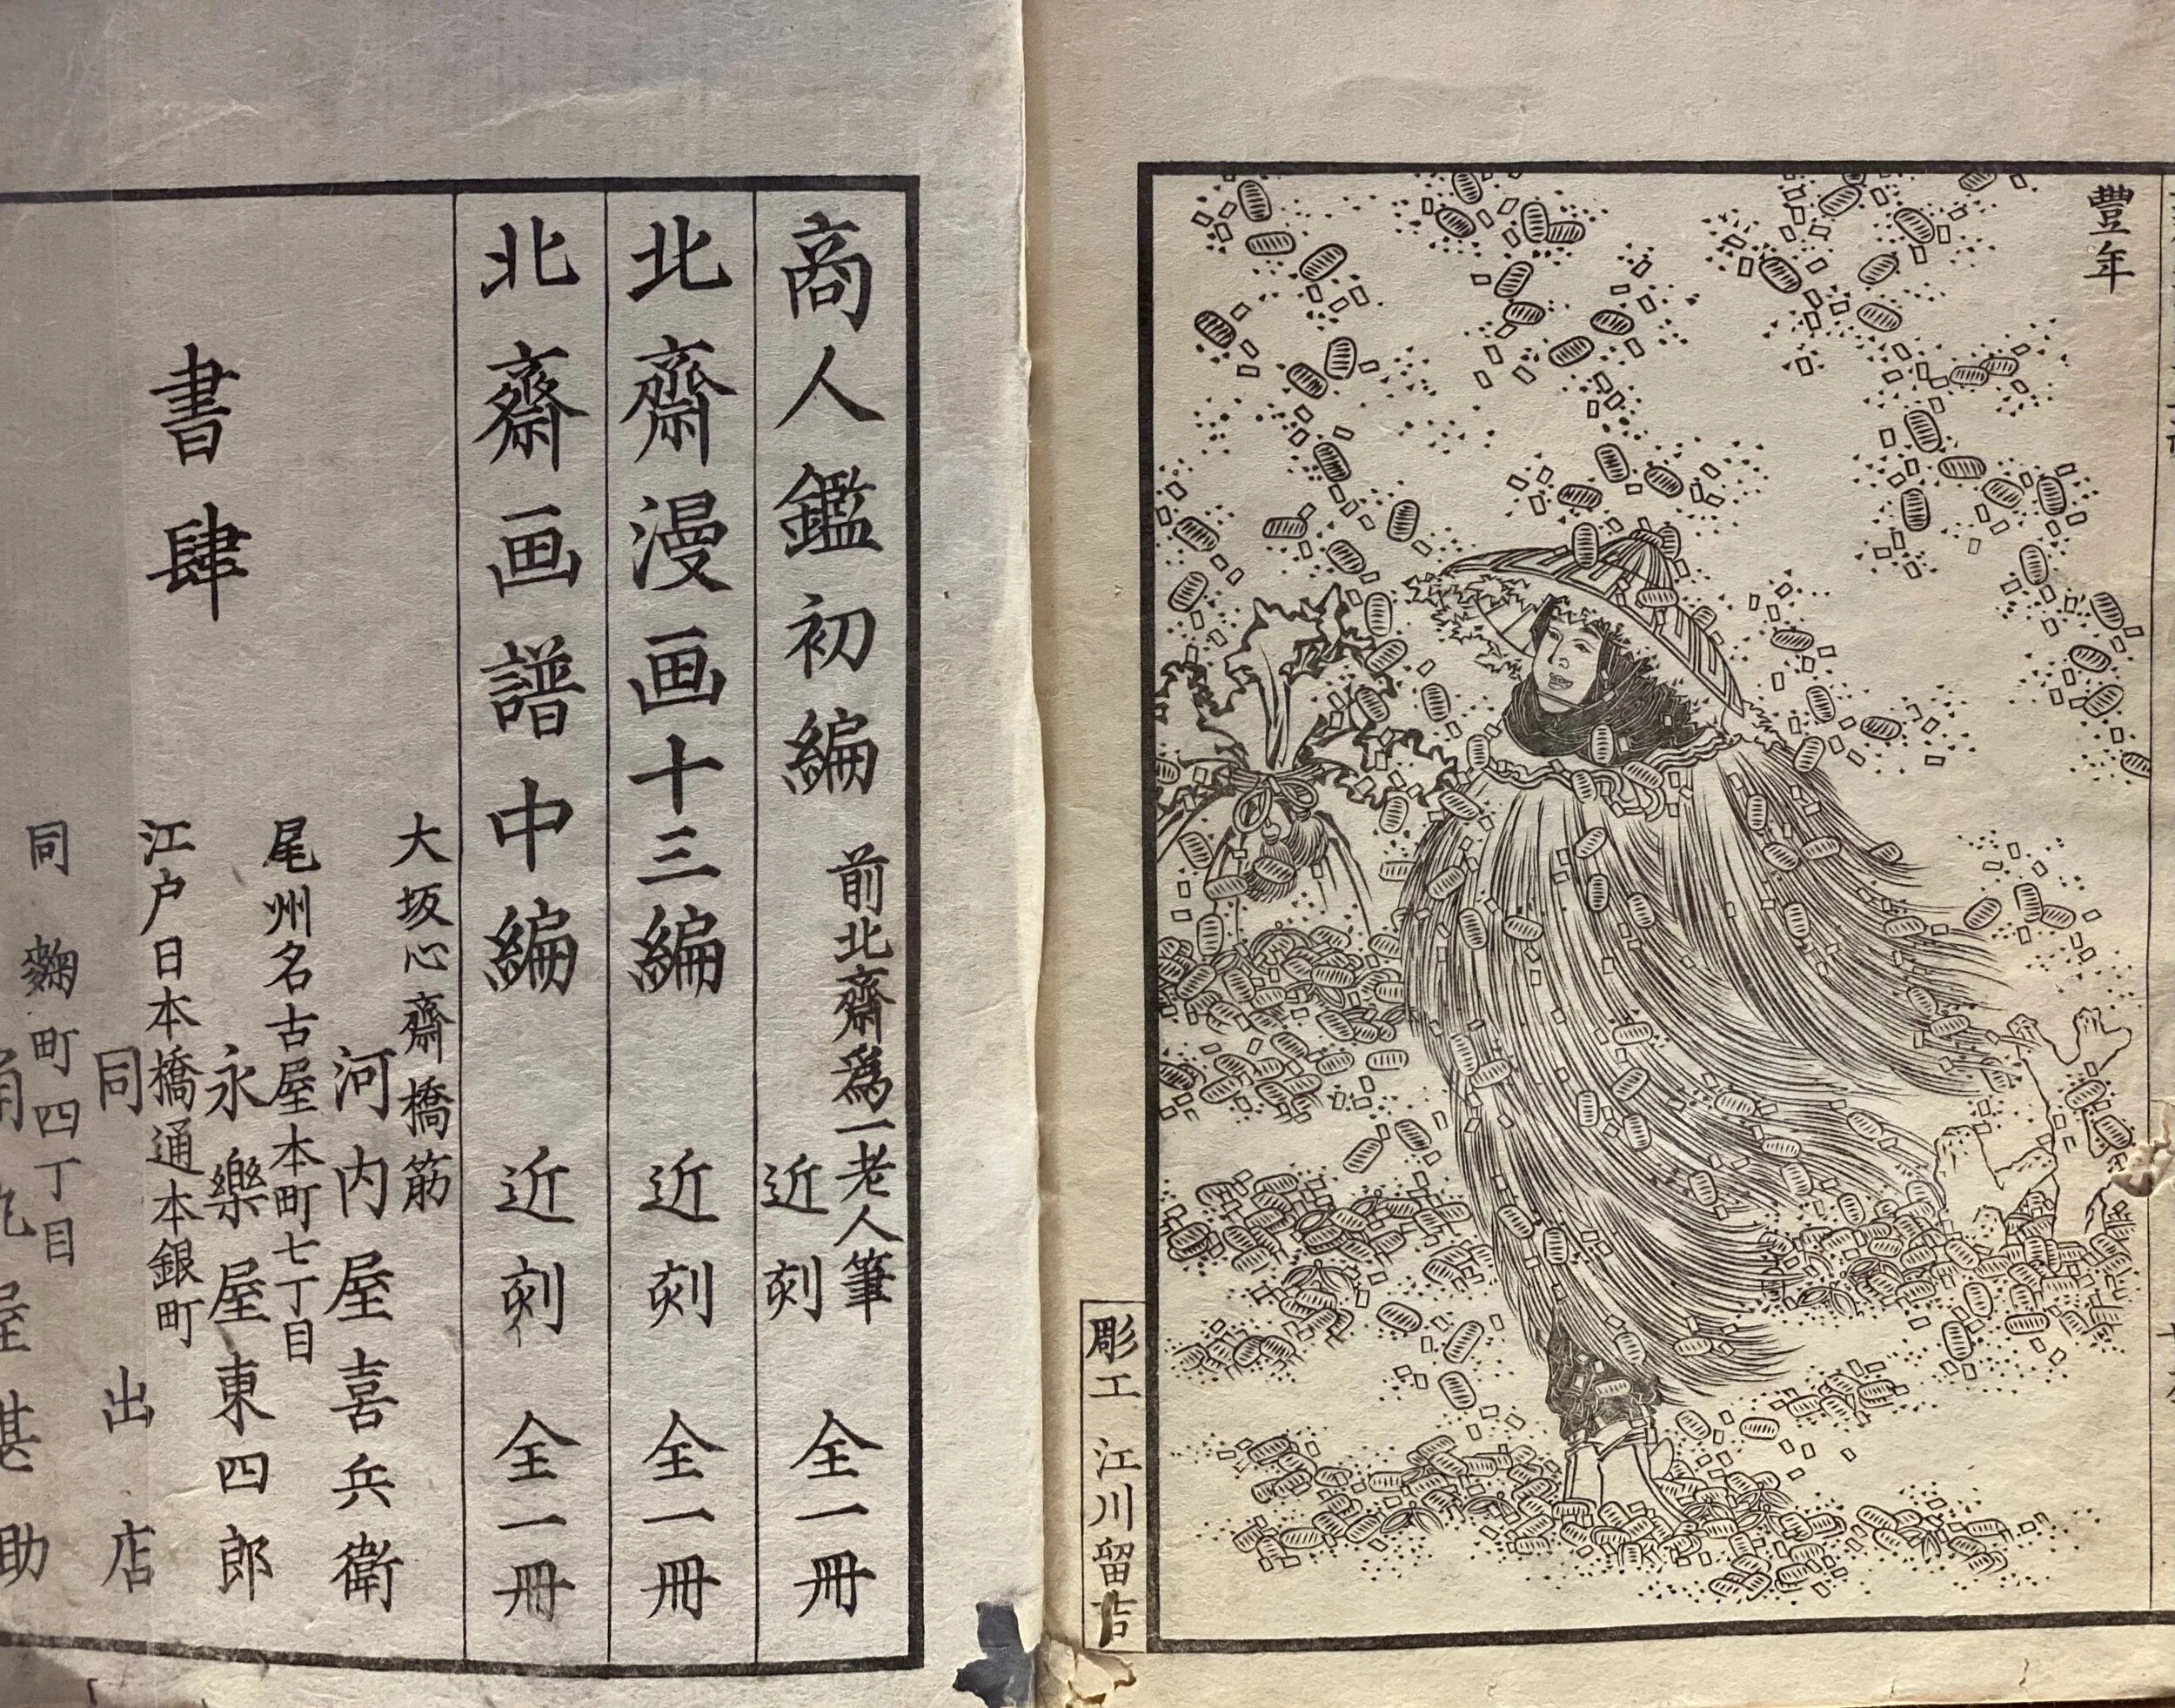 豐年
彫工 江川留吉
商人鑑初編 前北齋爲一老人筆 近刻 全一冊
北齋漫画十三編 近刻 全一冊
北齋画譜中編 近刻 全一冊
書肆
大坂心齋橋筋
河内屋喜兵衛
尾州名古屋本町七丁目
永樂屋東四郎
江户日本橋通本銀町
同出店
同 麴町四丁目
屋甚助